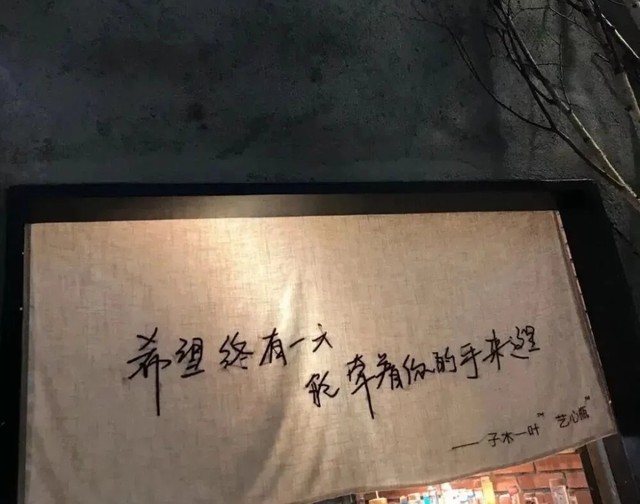 希望终有一天
能牵着你的手来这里
——子木一叶"艺心瓶"